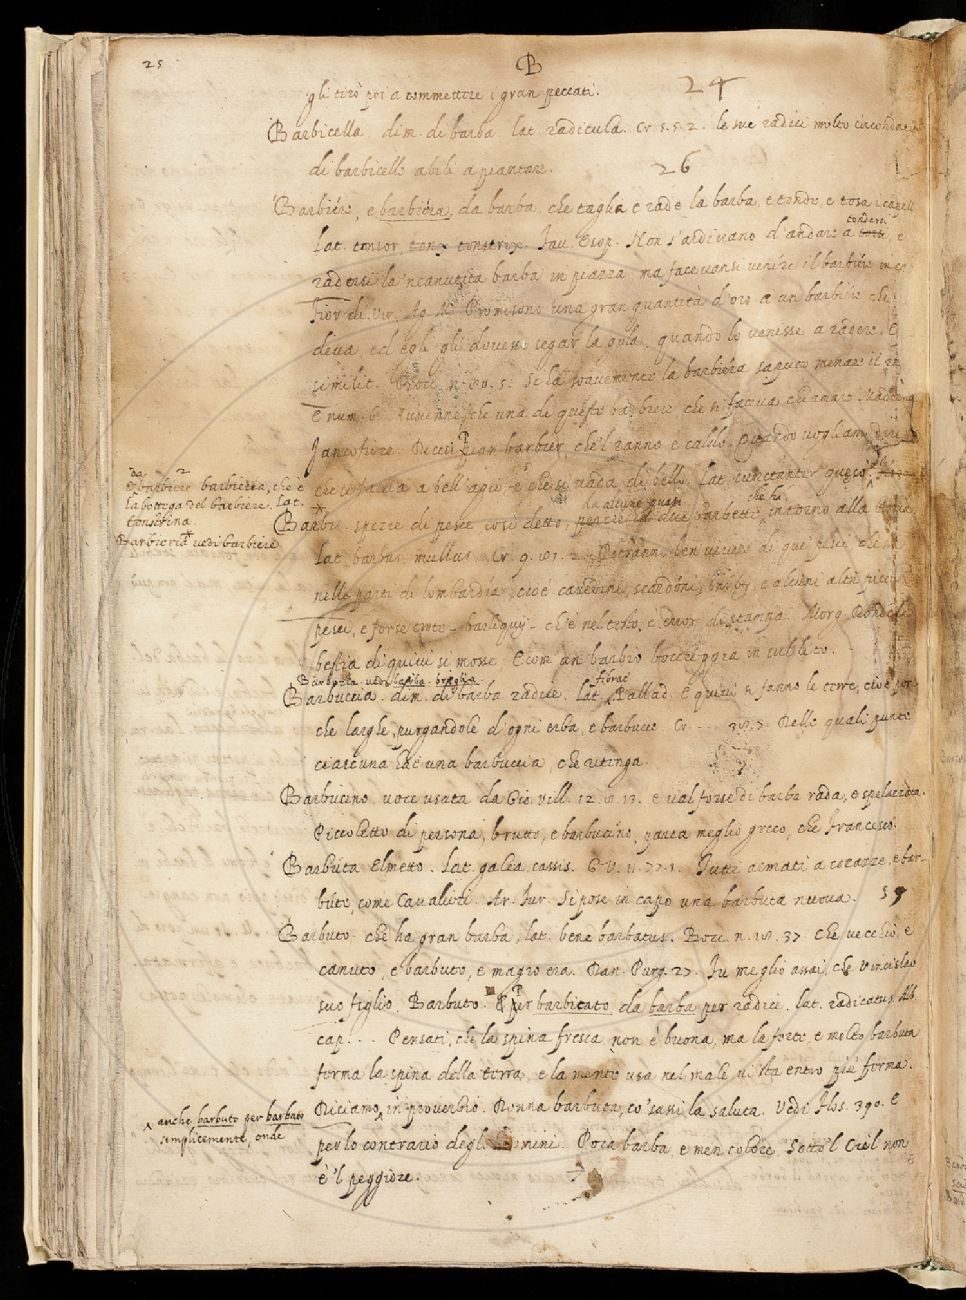 25
B
24
gli tirò poi a commettere i gran peccati.
Barbicella dim. di barba. lat. radicula. Cr. 5. 5. 2. le sue radici molto circondate
di barbicelle abili a piantare.
26
Barbiére, e barbiéra, da barba, che taglia e rade la barba, e tonde, e tosa i capell
Lat. tonsor, tonstrix. Fav. Esop. Non s'ardivano d'andare a tondersi, e
radersi la 'ncanutita barba in piazza, ma facevansi venire il barbiére in
Fior. di Vir. Ag. M. Promisono una gran quantità d'oro a un barbiére che
deva, ed egli gli dovesse segar la gola, quando lo venisse a radere. E
similit. Bocc. n. 80. 5. Se la soavemente la barbiéra saputo menare il
E num. 6. Avvenne, che una di queste barbiere, che si faceva chiamare Madonna
Jancofiore. Dicesi barbier, che 'l ranno è caldo. Quando vogliam dire
che si faccia a bell'agio, e che si rada di bello. Lat. cunctanter
da barbiere barbieria, che è
la bottega del barbiére. Lat.
tonstrina.
Barbieria vedi barbiére
Barbio. spezie di pesce così detto, da alcune quasi barbette, che ha intorno alla
Lat. barbus, mullus. Cr. 9. 81. 2. Potranno ben vivere di que' pesci che
nelle parti di lombardia, cioè cavedini, scardoni, barbi, e alcuni altri piccioli
pesci, e forse barliquij, ch'è nel testo, è error di stampa. Morg.
bestia di quivi si mosse. E com' un barbio boccheggia in
Barbozza vedi briglia.
Barbuccia. dim. di barba radice. Lat. fibrae. Pallad. E quivi si fanno le torre, cioè
che larghe, purgandole d'ogni erba, e barbucce. Cr. Delle quali punte
ciascuna hae una barbuccia, che ritinga.
Barbucino. voce usata da Gio. Vill. 12. 8. 13. e val forse di barba rada, e spelazzata.
Piccoletto di persona, brutto, e barbucino, parea meglio greco, che Francesco.
Barbúta Elmetto. Lat. galea, cassis. G. V. 11. 77. 1. Tutti armati a corazze, e bar-
bute, come Cavalieri. Ar. Fur. Si pose in capo una barbuta nuova.
Barbuto. che ha gran barba, lat. bene barbatus. Bocc. n. 18. 37. Che vecchio, e
canuto, e barbuto, e magro era. Dan. Purg. 27. Fu meglio assai, che Vincislao
suo figlio. Barbuto. E per barbicato da barba per radici. lat. radicatus. Alb.
cap. . . Pensati, che la spina fresca non è buona, ma la forte, e molto barbuta
forma la spina della terra, e la mente usa nel male
Diciamo in proverbio. Donna barbuta, co' sassi la saluta. Vedi Flos. 390. E
anche barbuto per barbato
semplicemente, onde
per lo contrario degl. uomini. Poca barba, e men colore, Sotto 'l Ciel non
è 'l peggiore.